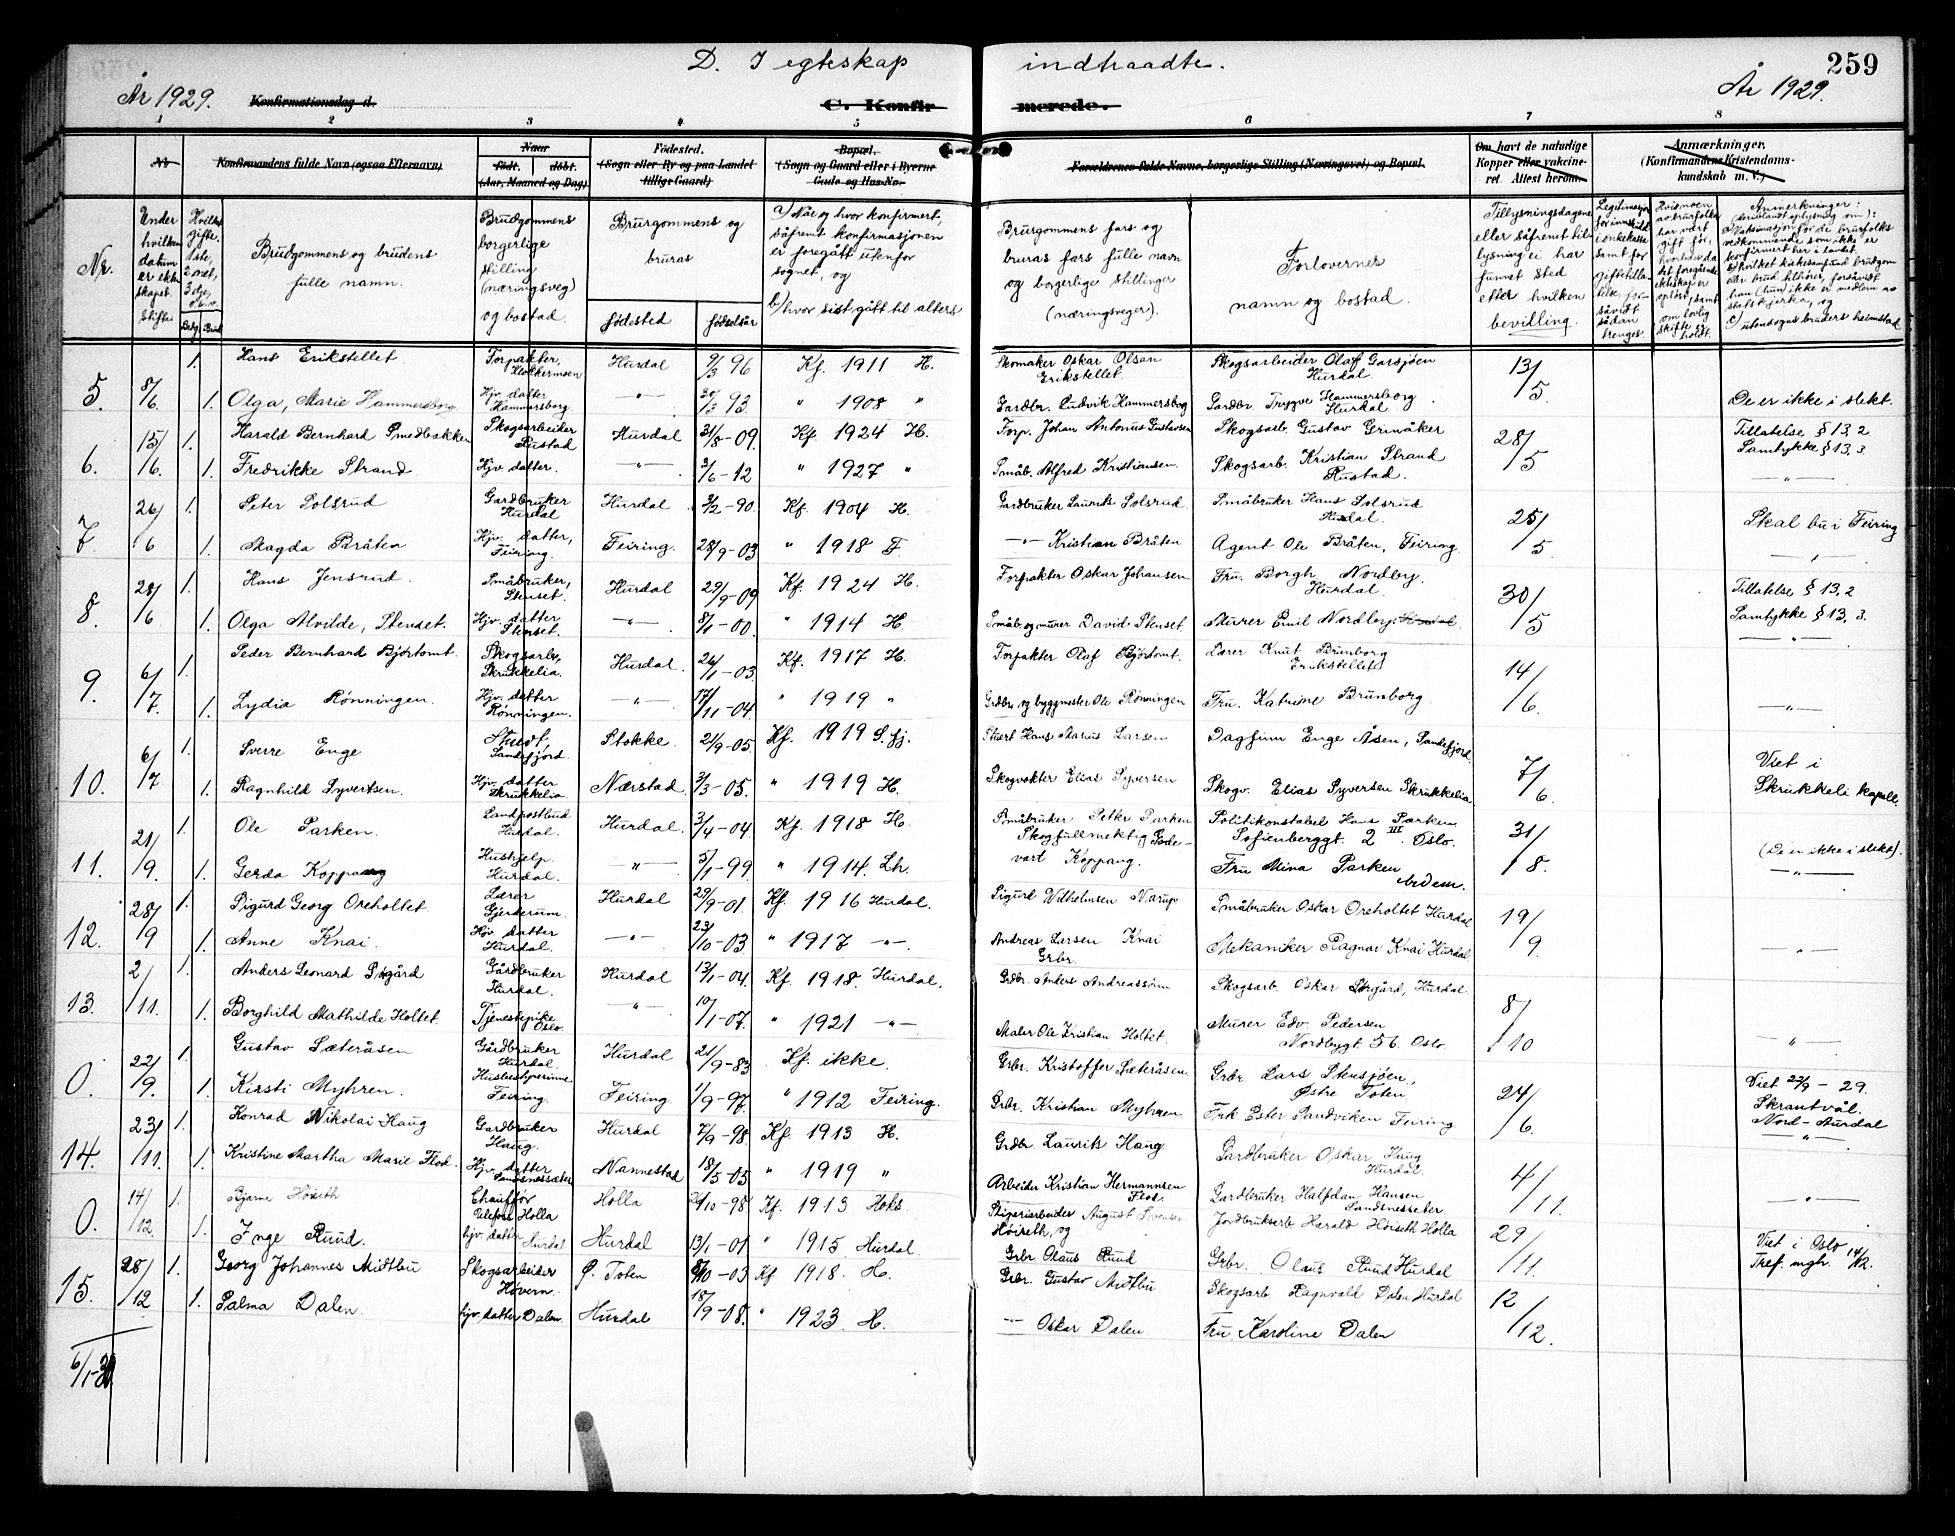 259
D. I egteskap indtraadte.
År 1929. Konfirmationsdag d. C. Konfirmerede. År 1929.
1 2 3 4 5 6 7 8
Nr. Konfirmandens fulde Navn (ogsaa Efternavn) Naar født. døbt. (Aar, Maaned og Dag)
Fødested. (Sogn eller By og paa Landet tillige Gaard)
Bopæl. (Sogn og Gaard eller i Byerne Gade og Hus-No.
Forældrenes fulde Navne, borgerlige Stilling (Næringsvei) og Bopæl.
Om havt de naturlige Kopper eller vakcineret Attest herom.
Anmærkninger. (Konfirmandens Kristendomskundskab m. V.)
Nr.
Under hvilken datum er ekteskapet stiftet
Brudgommens og brudens fulle namn.
Brudgommens borgerlige stilling (næringsveg) og bostad.
Brurgommens og bruras
fødested fødselsår
a) Når og hvor konfirmert, såfremt konfirmasjonen er foregått utenfor sognet, og
b/ hvor sist gått til alters
Brurgommens fars og bruras fars fulle navn og borgerlige stillinger (næringsveger).
Forlovernes namn og bostad.
Tillysningsdagene eller såfremt tillysning ei har funnet sted etter hvilken bevilling.
Anmerkninger:
5. 8/6 1. Hans Erikstellet Forpakter, Hurdal 9/3 96 Kf. 1911 H. Skomaker Oskar Olsen Erikstellet. Skogsarbeider Olaf Garsjøen Hurdal 13/5
1. Olga, Marie Hammersborg Hjv. datter Hammersborg. —"— 93 " 1908 " Gardbr. Ludvik Hammersborg Gardbr. Trygve Hammersborg Hurdal De er ikke i slekt.
6. 15/6 1. Harald Bernhard Smedbakken Skogsarbeider Rustad Hurdal 31/8-09. Kf. 1924 H. Forp. Johan Antonus Gustavsen Skogsarb. Gustav Grinåker 28/5 Tillatelse § 13,2 Samtykke § 13,3.
1. Fredrikke Strand Hjv. datter. —"— /6-12 " 1927 " Småb. Alfred Kristiansen. Skogsarb. Kristian Strand Rustad. —"—
7 26/6 1. Peter Solsrud Gardbruker Hurdal Hurdal /2-90. Kf. 1904 H. Gardbruker Laurits Solsrud Småbruker Hans Solsrud Hurdal. 25/5 Skal bu i Feiring
1. Magda Bråten Hjv. datter, Feiring. Feiring. 28/9-03 " 1918 F. —"— Kristian Bråten Agent Ole Bråten, Feiring. —"—
8. 28/6 1. Hans Jensrud. Småbruker, Stenset. Hurdal 29/9-09 Kf. 1924 H. Forpakter Oskar Johansen Fru. Borgh. Nordby. Hurdal. 30/5 Tillatelse § 13,2
1. Olga Alvilde, Stenset. Hjv. datter Stenset. —"— 8/1-00. " 1914 H. Småb. og murer David Stenset. Murer Emil Nordby, Hurdal. Samtykke § 13,3. —"—
9. 6/7. 1. Peder Bernhard Bjørtomt. Skogsarb., Skrukkelia. Hurdal. 26/1-03. Kf. 1917 H. Forpakter Olaf Bjørtomt. Lærer Knut Brunborg Erikstellet 14/6.
1. Lydia Rønningen. Hjv. datter Rønningen. —"— 17/11-04. " 1919 " Grdbr og byggmester Ole Rønningen Fru. Katrine Brunborg —"—
10. 6/7 1. Sverre Enge Stuert, Sandefjord Stokke. 21/9-05 Kf. 1919 S.fj. Stuert Hans Marius Larsen Dagfinn Enge Åsen, Sandefjord. 7/6. Viet i Skrukkeli kapell.
1. Ragnhild Syvertsen. Hjv. datter Skrukkelia Nærstad. 3/3-05. " 1919 H. Skogvokter Elias Syversen Skogv. Elias Syversen Skrukkelia
11. 21/9. 1. Ole Parken. Landpostbud Hurdal. Hurdal. 3/4-04 Kf. 1918 H. Småbruker Petter Parken Politikonstabel Hans Parken Sofienberggt. 2 III. Oslo. 31/8. (De er ikke i slekt).
1. Gerda Koppang Hushjelp Hurdal. —"— 5/1-99 " 1914. Lh. Skogfullmektig Godevart Koppang. Fru Mina Parken ibidem. —"—
12. 28/9 1. Sigurd Georg Oreholtet Lærer Gjerdrum. Hurdal 29/9-01. Kf. 1916 Hurdal. Sigurd Wilhelmsen Narup Småbruker Oskar Oreholtet Hurdal 19/9.
1. Anne Knai. Hjv. datter Hurdal. —"— 23/10-03 " 1917 —"—. Andreas Larsen Knai Grbr. Mekaniker Ragnar Knai Hurdal —"—
13. 2/11. 1. Anders Leonard Sigård Gårdbruker Hurdal. Hurdal 13/1-04. Kf. 1918. Hurdal. Grdbr. Anders Andreassønn Skogsarb. Oskar Sigård, Hurdal. 8/10
1. Borghild Mathilde Holtet Tjenestepike Oslo. —"— 10/1-07. " 1921 —"— Maler Ole Kristian Holtet. Murer Edv. Pedersen Nordbygt 56. Oslo. —"—
0. 22/9. 1. Gustav Sæteråsen Gårdbruker Hurdal. Hurdal 21/9-83 Kf. ikke. Grbr. Kristoffer Sæteråsen. Grbr Lars Stensjøen, Østre Toten. 24/6. Viet 22/9-29. Skrautvål. Nord-Aurdal
1. Kirsti Myhren. Husbestyrerinne Feiring. Feiring. 1/9-97. " 1912 Feiring. Grbr. Kristian Myhren. Frk Ester Sandviken Feiring —"—
14. 23/11. 1. Konrad Nikolai Haug Gardbruker Haug. Hurdal 7/9-98. Kf. 1913 H. Grdbr Laurits Haug. Gardbruker Oskar Haug Hurdal. 4/11.
1. Kristine Martha Marie Flod. Hjv. datter Sandsnessæter Nannestad 18/5-05 " 1919 " Arbeider Kristian Hermannsen Flod. Gardbruker Halfdan Hansen Sandnesseter —"—
0. 14/12. 1. Bjarne Høiseth Chauffør Ulefoss Holla Holla /10-98. Kf. 1913 Høiseth, og Jordbruksarb Harald Høiseth Holla 29/11. Viet i Oslo Tref. mgh. 14/12.
1. Inge Ruud. hjv. datter Hurdal Hurdal 13/1-01 " 1915 Hurdal. Grbr Olaus Ruud Grbr. Olaus Ruud Hurdal
15. 28/12 1. Georg Johannes Midtbu Skogsarbeider Høvern. Ø. Toten /10-03 Kf 1918. H. Grbr. Gustav Midtbu Skogsarb Ragnvald Dalen Hurdal 12/12.
1. Palma Dalen. hjv. datter Dalen. Hurdal 18/9-08. " 1923 H. —"— Oskar Dalen Fru. Karoline Dalen
6/1-30